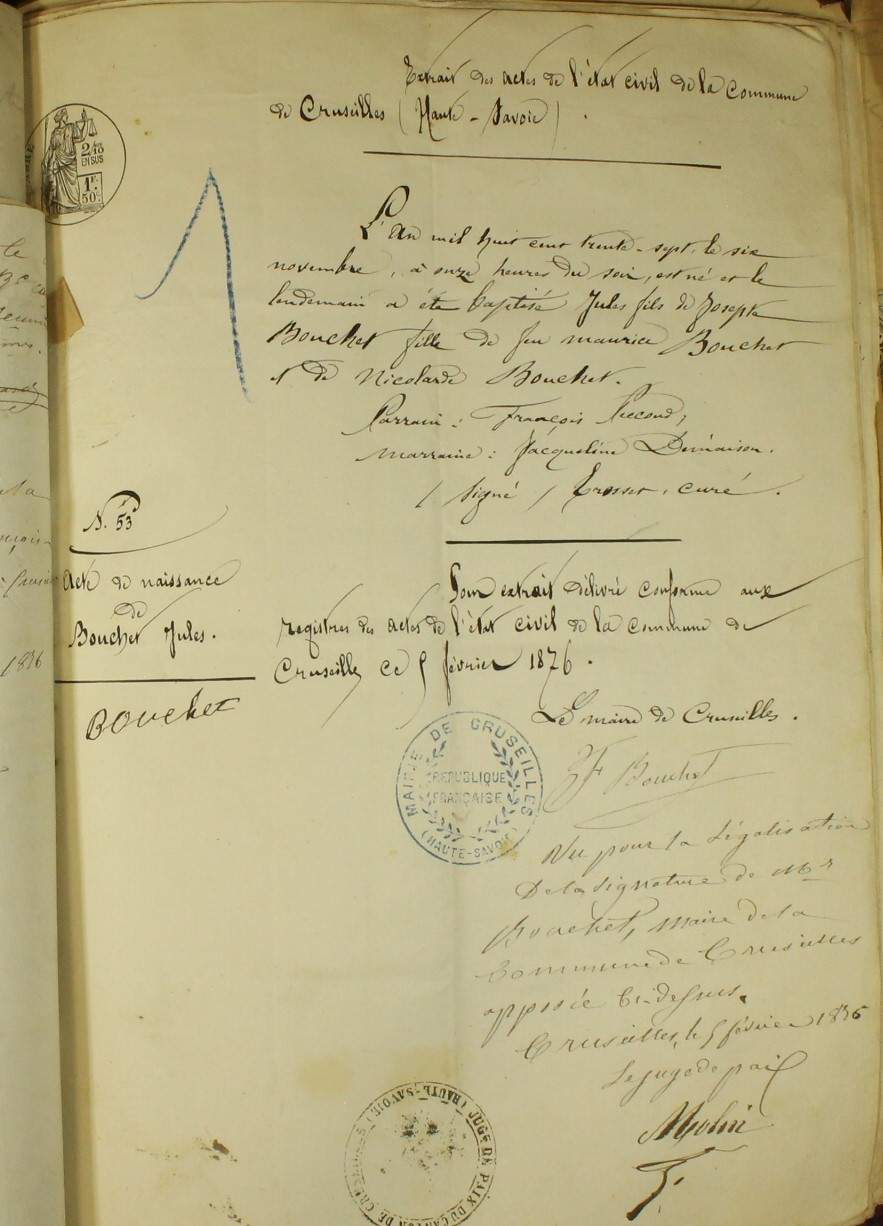 Extrait des actes de l'état civil de la Commune
de Cruseilles (Haute-Savoie).
2/10
EN SUS
1F.
50c.
L'an mil huit cent trente-sept, le six
novembre, à onze heures du soir, est né et le
lendemain a été baptisé Jules fils de Joseph
Bouchet fille de feu maurice Bouchet
et de Nicolarde Bouchet.
Parrain : François
marraine : Jacqueline Démaison.
/ Signé / Trosset, curé.
N. 53
Acte de naissance
de
Bouchet Jules.
Bouchet
Pour extrait délivré conforme aux
registres des actes de l'état civil de la commune de
Cruseilles ce 5 février 1876.
Le maire de Cruseilles.
MAIRIE DE CRUSEILLES
RÉPUBLIQUE
FRANÇAISE
(HAUTE-SAVOIE)
Bouchet
Vu pour la légalisation
De la signature de Mr
Bouchet, maire de la
Commune de Cruseilles
apposée Ci-dessus.
Cruseilles, le 5 février 1876
Le juge de paix
JUGE DE PAIX DU CANTON DE CRUSEILLES (HAUTE-SAVOIE)